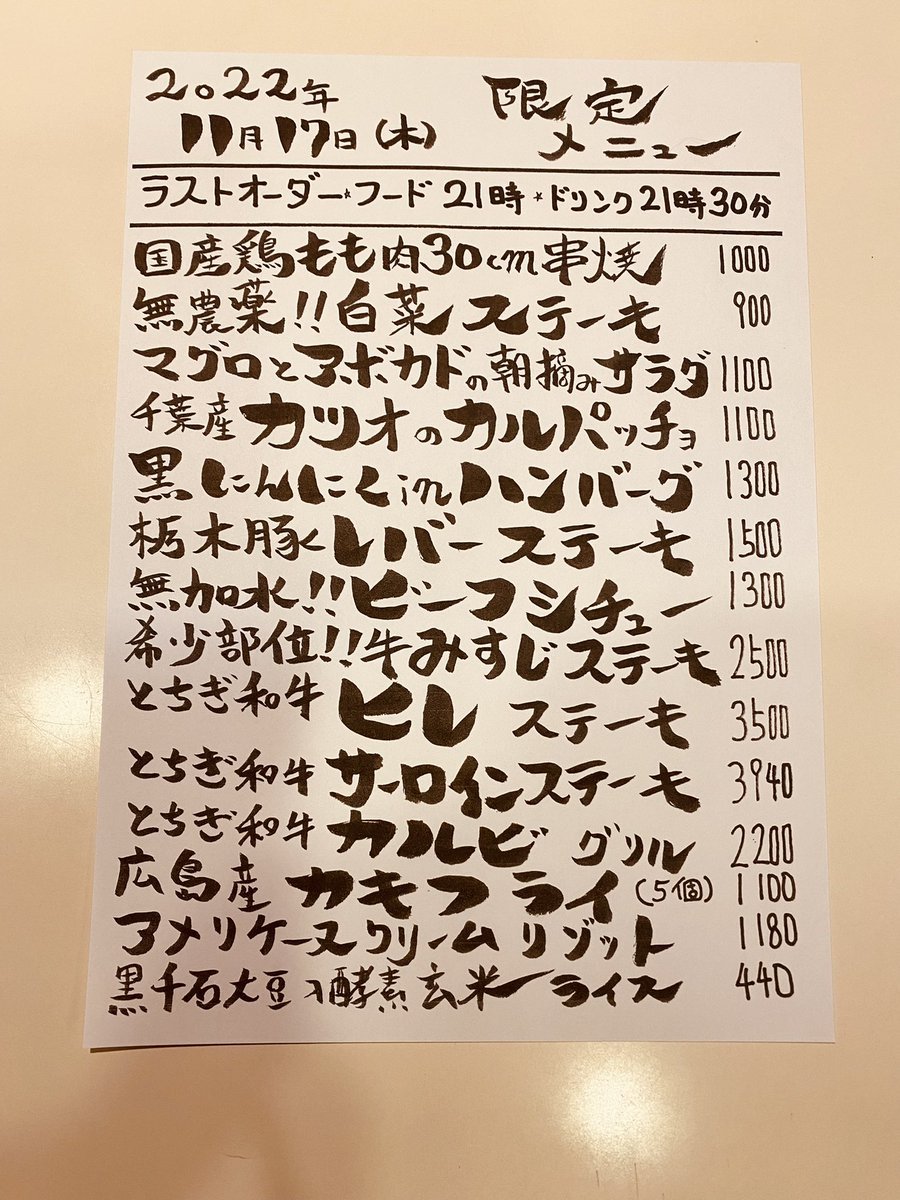 2022年
11月17日(木)
限定
メニュー
ラストオーダー★フード21時★ドリンク21時30分
国産鶏もも肉30cm串焼 1000
無農薬!!白菜ステーキ 900
マグロとアボカドの朝摘みサラダ 1100
千葉産カツオのカルパッチョ 1100
黒にんにくinハンバーグ 1300
栃木豚くレバーステーキ 1500
無加水!!ビーフシチュー 1300
希少部位!!牛みすじステーキ 2500
とちぎ和牛ヒレステーキ 3500
とちぎ和牛サーロインステーキ 3940
とちぎ和牛カルビグリル 2200
広島産カキフライ(5個) 1100
アメリケーヌクリームリゾット 1180
黒千石大豆入酵素玄米ライス 440